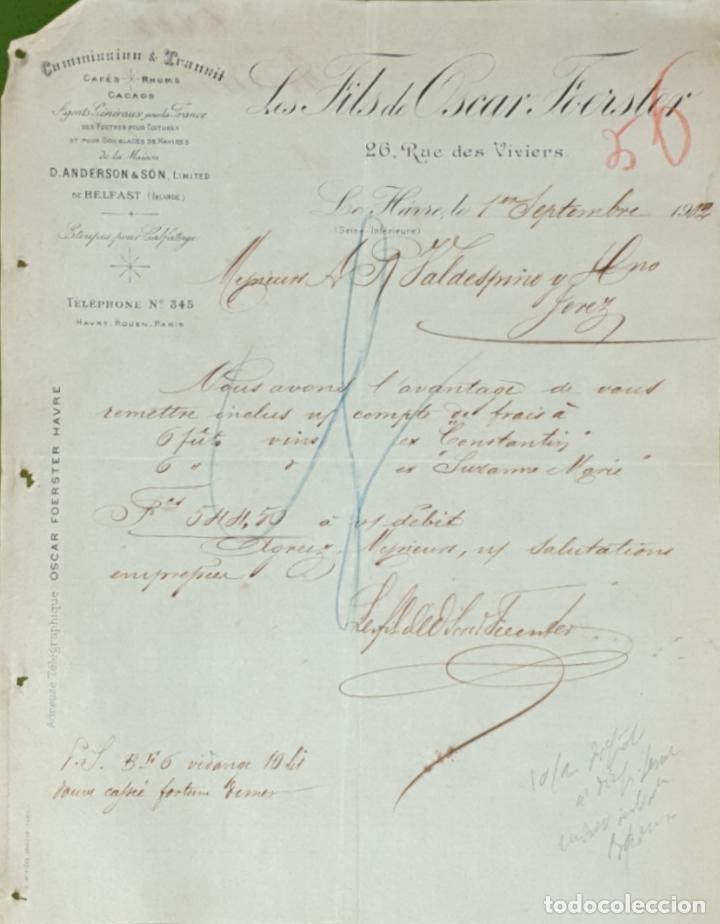 Commission & Transit
CAFÉS RHUMS
CACAOS
Agents Généraux pour la France
DES FEUTRES POUR TOITURES
ET POUR DOUBLAGES DE NAVIRES
de la Maison
D. ANDERSON & SON, LIMITED
DE BELFAST (IRLANDE)
Etoupes pour Calfatage
TÉLÉPHONE Nº 345
HAVRE-ROUEN-PARIS
Adresse Télégraphique OSCAR FOERSTER HAVRE
Les Fils de Oscar Foerster
26, Rue des Viviers.
Le Hâvre, le 1er Septembre 1902
(Seine-Inférieure)
Messieurs A R Valdespino y Hno
Jerez
Nous avons l'avantage de vous
remettre inclus n/ compte de frais à
6 fûts vins ex "Constantin"
6 " " ex "Suzanne Marie"
Fcs 544,50 à v/ débit
Agréez, Messieurs, n/ salutations
empressées
Les Fils de Oscar Foerster
P.S. BF6 vidange 10 lit
douve cassée fortune de mer
todocoleccion.net